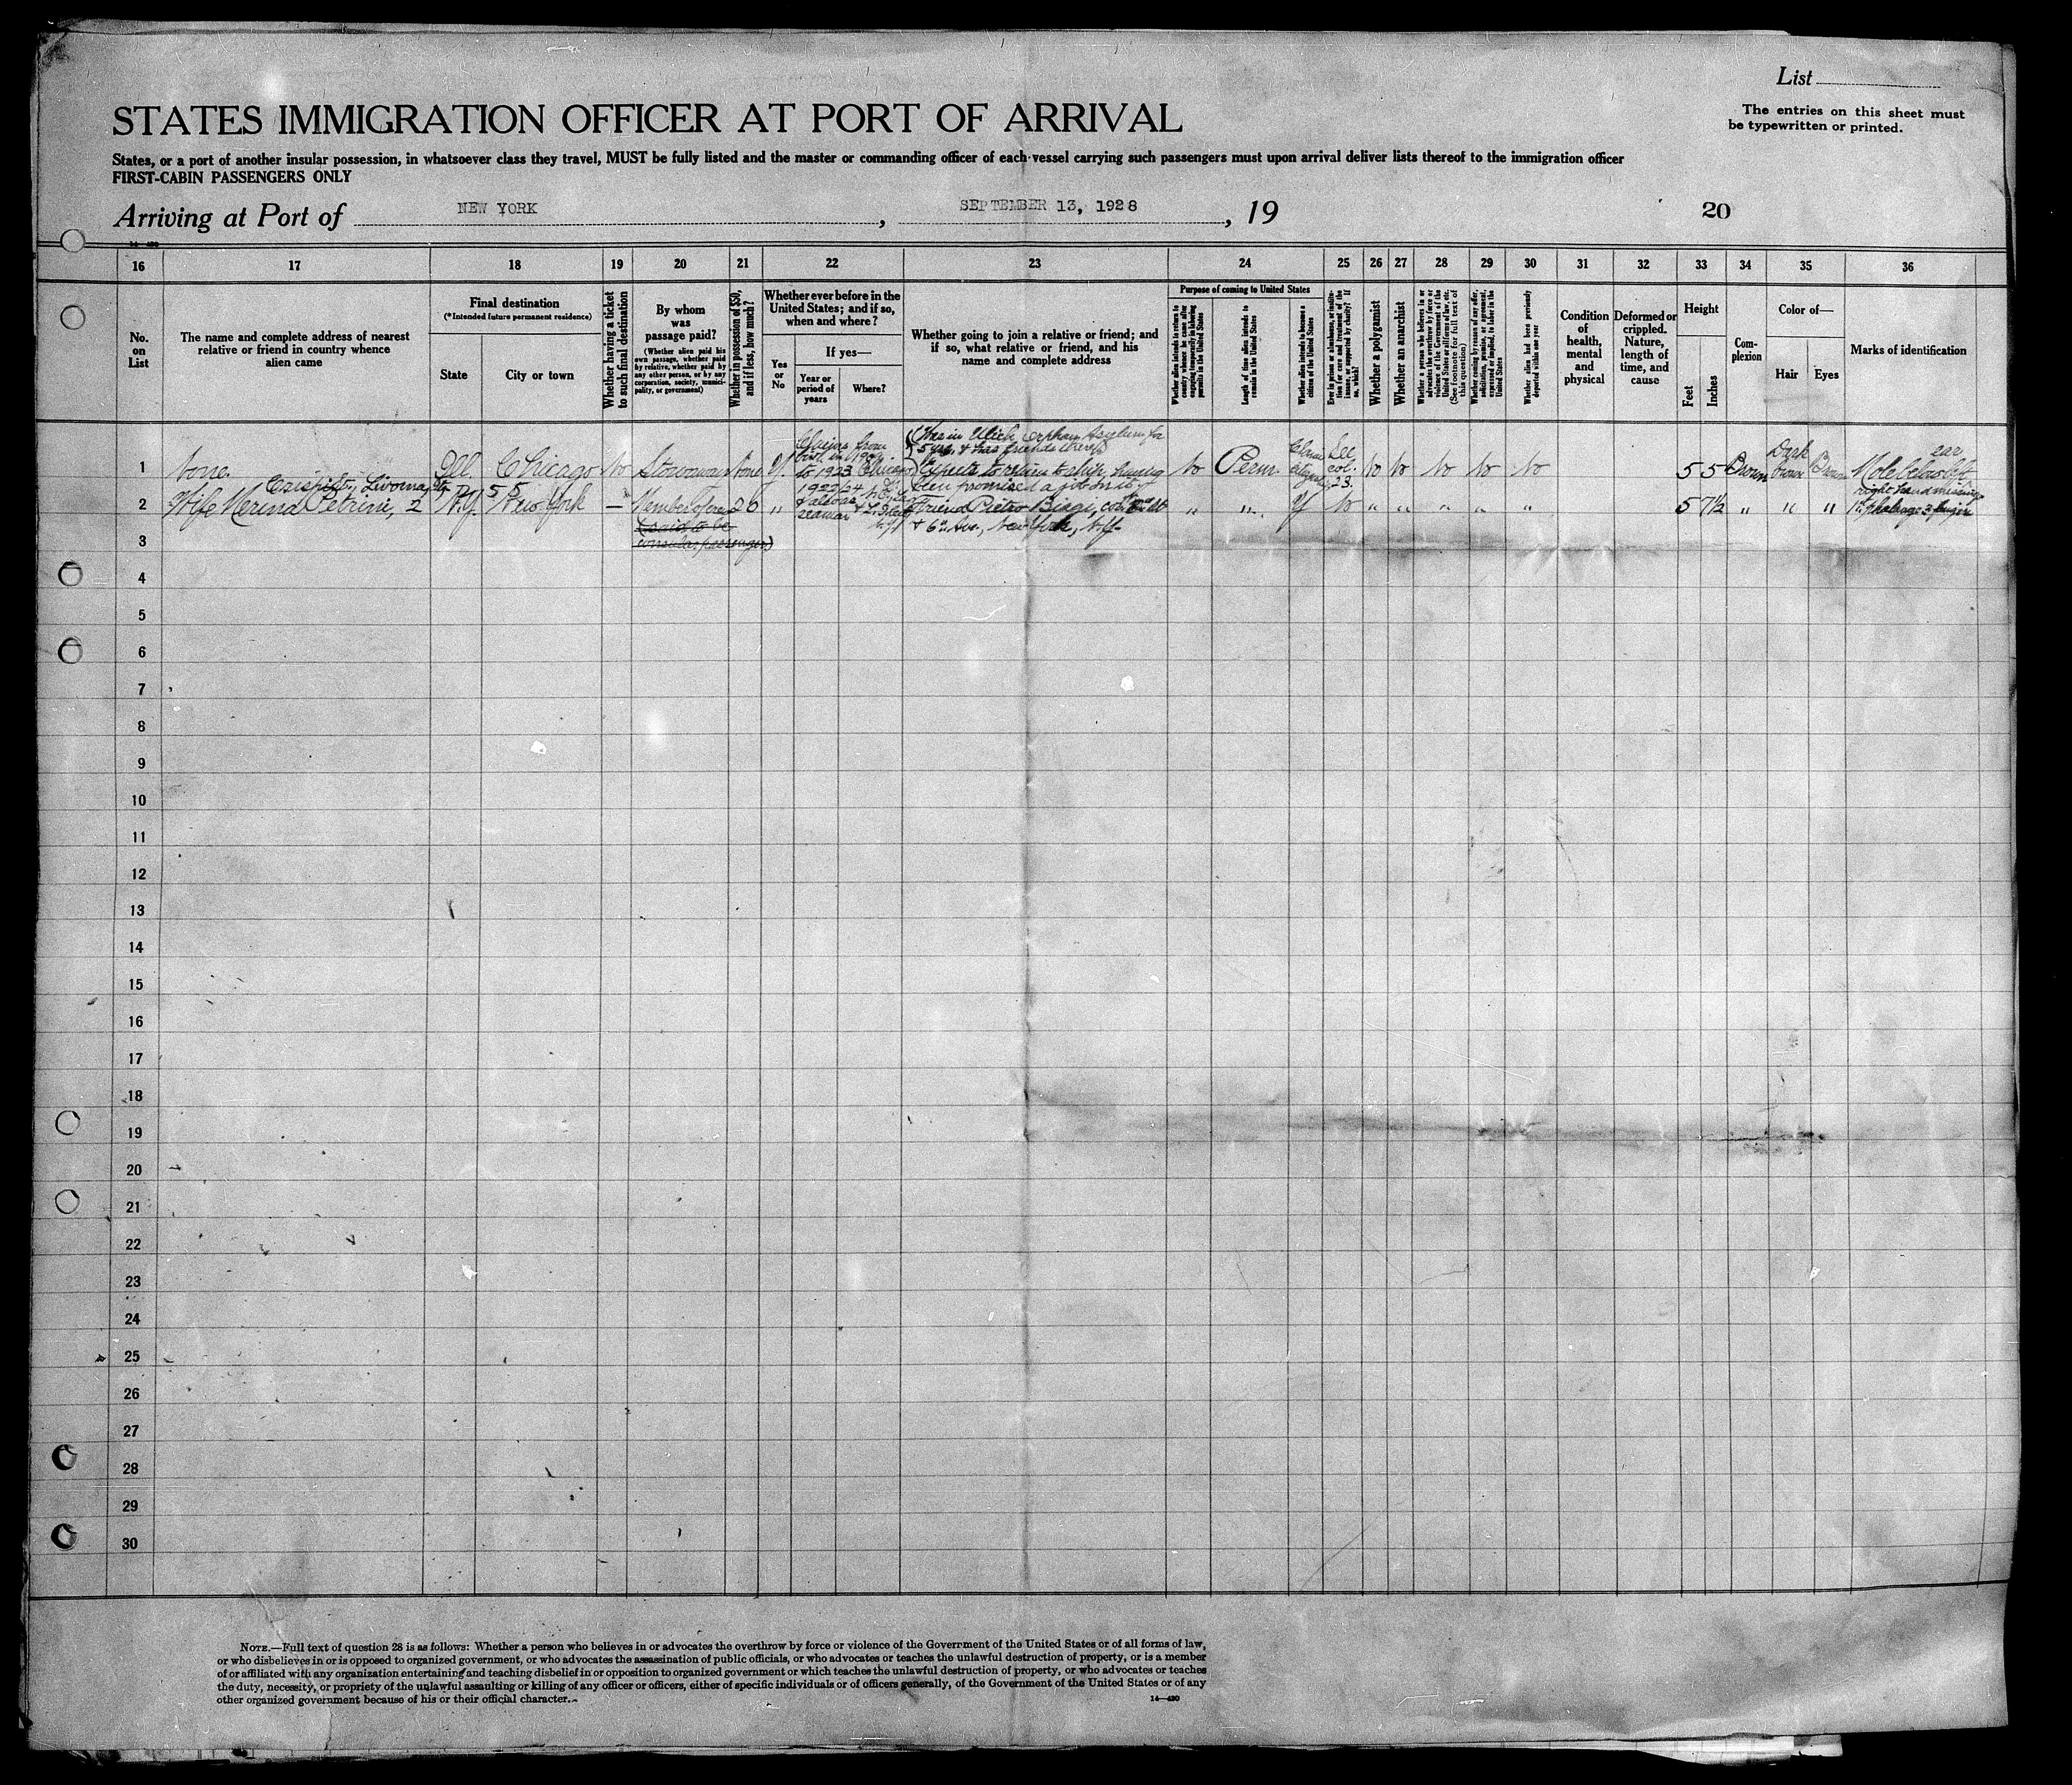 List
STATES IMMIGRATION OFFICER AT PORT OF ARRIVAL
The entries on this sheet must
be typewritten or printed.
States, or a port of another insular possession, in whatsoever class they travel, MUST be fully listed and the master or commanding officer of each vessel carrying such passengers must upon arrival deliver lists thereof to the immigration officer
FIRST-CABIN PASSENGERS ONLY
Arriving at Port of NEW YORK, SEPTEMBER 13, 1928, 19 20
14—430
16 17 18 19 20 21 22 23 24 25 26 27 28 29 30 31 32 33 34 35 36
No. on List
The name and complete address of nearest
relative or friend in country whence
alien came
Final destination
(*Intended future permanent residence)
State
City or town
Whether having a ticket
to such final destination
By whom
was
passage paid?
(Whether alien paid his
own passage, whether paid
by relative, whether paid by
any other person, or by any
corporation, society, munici-
pality, or government)
Whether in possession of $50,
and if less, how much?
Whether ever before in the
United States; and if so,
when and where?
Yes
or
No
If yes—
Year or
period of
years
Where?
Whether going to join a relative or friend; and
if so, what relative or friend, and his
name and complete address
Purpose of coming to United States
Whether alien intends to return to
country whence he came after
engaging temporarily in laboring
pursuits in the United States
Length of time alien intends to
remain in the United States
Whether alien intends to become a
citizen of the United States
Whether a polygamist
Whether an anarchist
Whether a person who believes in or
advocates the overthrow by force or
violence of the Government of the
United States or all forms of law, etc.
(See footnote for full text of
this question)
Whether coming by reason of any offer,
solicitation, promise, or agreement,
expressed or implied, to labor in the
United States
Whether alien had been previously
deported within one year
Condition
of
health,
mental
and
physical
Deformed or
crippled.
Nature,
length of
time, and
cause
Height
Feet
Inches
Com-
plexion
Color of—
Hair
Eyes
Marks of identification
1 None Ill. Chicago No Stowaway None Y
Claims from
birth in
to 1923 Chicago
(Was in Ulich Orphan Asylum for
5 yrs. & has friends there)
Expects to return to ship having
been promised a job on it
No Perm. See
col.
23. No No No No No 5 5 Brown Dark
brown Brown Mole below left
ear
2 Wife Merina Petrini, 2 N.Y. New York — Member of crew 20 "
1922/24
seaman
Friend Pietro Biagi, cor.
& 6th Ave., New York, N.Y.
" " Y No " " " " " 5 7½ " " " right hand missing
1st phalange 3 finger
(said to be
consular passenger)
3
4
5
6
7
8
9
10
11
12
13
14
15
16
17
18
19
20
21
22
23
24
25
26
27
28
29
30
NOTE.—Full text of question 28 is as follows: Whether a person who believes in or advocates the overthrow by force or violence of the Government of the United States or of all forms of law,
or who disbelieves in or is opposed to organized government, or who advocates the assassination of public officials, or who advocates or teaches the unlawful destruction of property, or is a member
of or affiliated with any organization entertaining and teaching disbelief in or opposition to organized government or which teaches the unlawful destruction of property, or who advocates or teaches
the duty, necessity, or propriety of the unlawful assaulting or killing of any officer or officers, either of specific individuals or of officers generally, of the Government of the United States or of any
other organized government because of his or their official character.
14—430